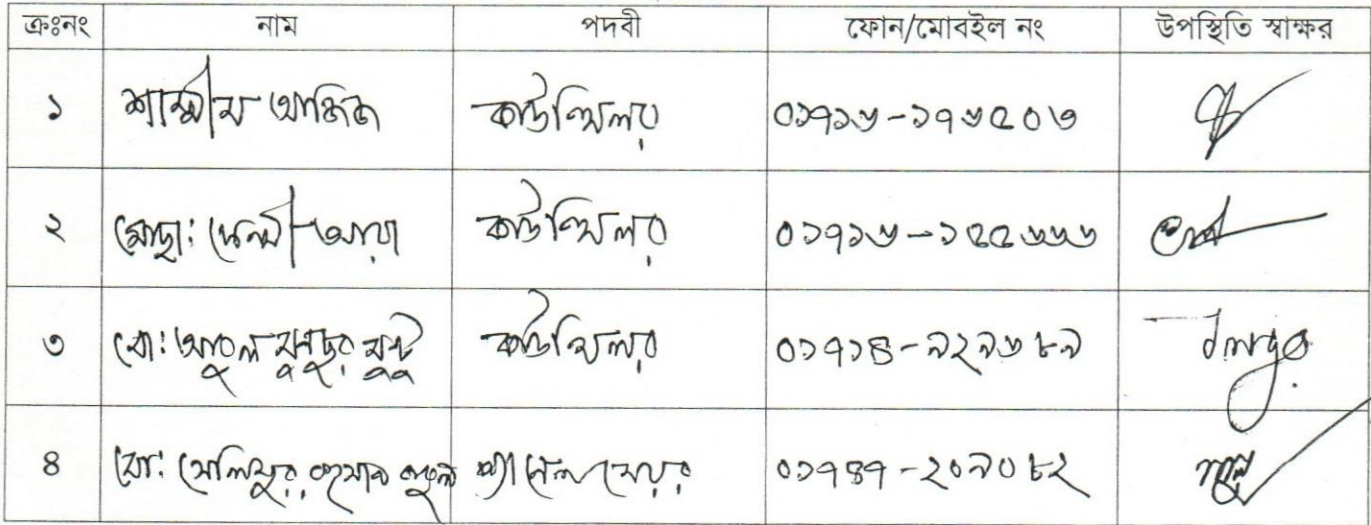 ক্রঃনং নাম পদবী ফোন/মোবাইল নং উপস্থিতি স্বাক্ষর
১ শামীম আজিজ কাউন্সিলর ০১৭১৬-১৭৬৫০৩
২ মোছা: আরা কাউন্সিলর ০১৭১৬-১৫৫৬৬৬
৩ মো: আবুল মুনছুর মুন্টু কাউন্সিলর ০১৭১৪-৯২৯৬৮৯
৪ মো: প্যানেল মেয়র ০১৭৪৭-২০৯০৮২